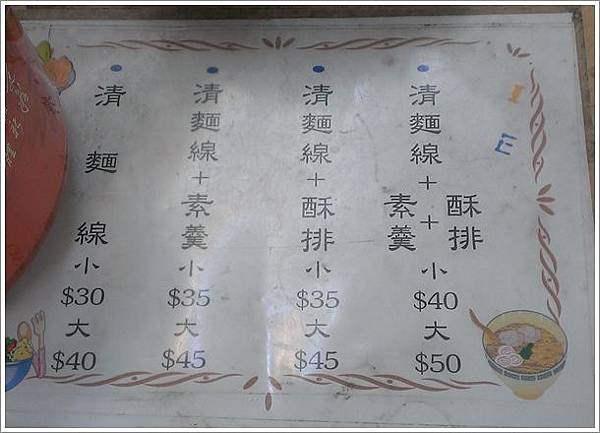 清麵線+素羹+酥排
小
$40
大
$50
清麵線+酥排
小
$35
大
$45
清麵線+素羹
小
$35
大
$45
清麵線
小
$30
大
$40
I
E